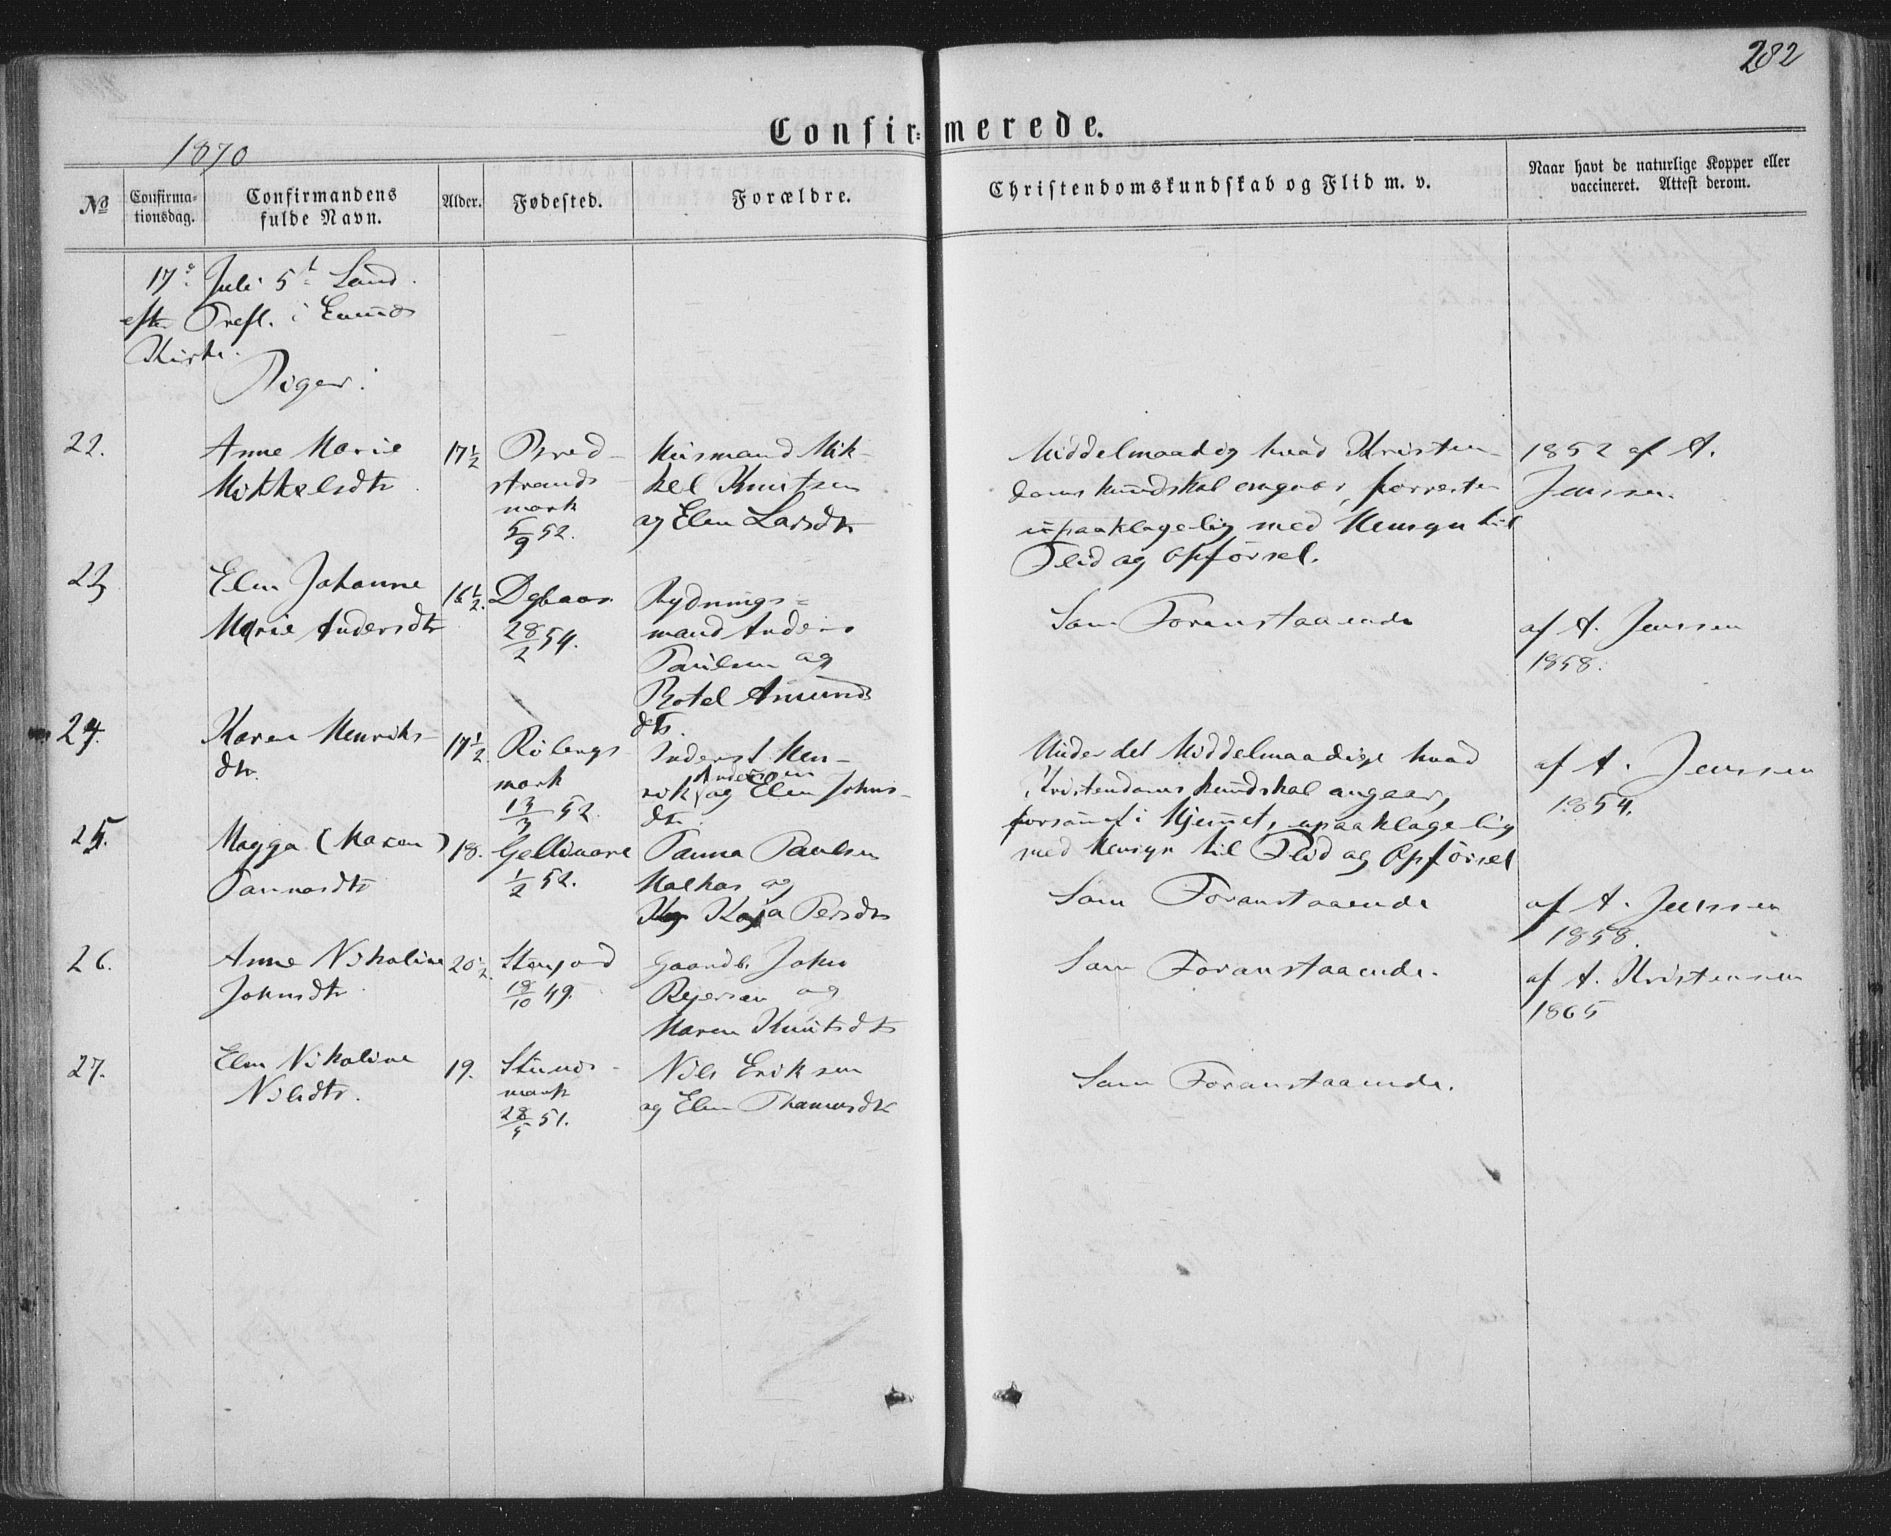 282
Confirmerede.
1870
No
Confirma-
tionsdag.
Confirmandens
fulde Navn.
Alder.
Fødested.
Forældre.
Christendomskundskab og Flid m. v.
Naar havt de naturlige Kopper eller
vaccineret. Attest derom.
17de Juli 5t Sønd.
efter Trefl. i
Kirke.
Piger:
22.
Anne Marie
Mikkelsdtr
17½
Bred-
strands
mark
5/9 52.
Husmand Mik-
kel Knutsen
og Elen Larsdtr
Middelmaadig hvad Kristen-
domskundskab angaar, forresten
upaaklagelig med Hensyn til
Flid og Opførsel.
1852 af A.
Jenssen.
23
Elen Johanne
Marie Andersdtr
16½.
28/2 54.
Rydnings-
mand Anders
Paulsen og
Botel Amunds
dtr.
Som Foranstaaende
af A. Jenssen
1858.
24.
Karen Henriks-
dtr.
17½
Røbergs
mark
13/3 52.
Inderst Hen-
rik Andersen og Elen Johns-
dtr.
Under det Middelmaadige hvad
Kristendomskundskab angaar,
forsømt i Hjemmet, upaaklagelig
med Hensyn til Flid og Opførsel
af A. Jenssen
1854.
25.
Magga (Maren)
Tannasdtr
18.
Gellivare
1/2 52.
Tanna Paulsen
Malkas og
Kaja Persdtr
Som Foranstaaende
af A. Jenssen
1858.
26.
Anne Nikoline
Johnsdtr.
20½.
Stenjord
18/10 49.
Gaardb. John
Rejersen og
Maren Knutsdtr
Som Foranstaaende.
af A. Kristensen
1865
27.
Elen Nikoline
Nilsdtr.
19.
mark
28/5 51.
Nils Eriksen
og Elen Thomasdtr
Som Foranstaaende.